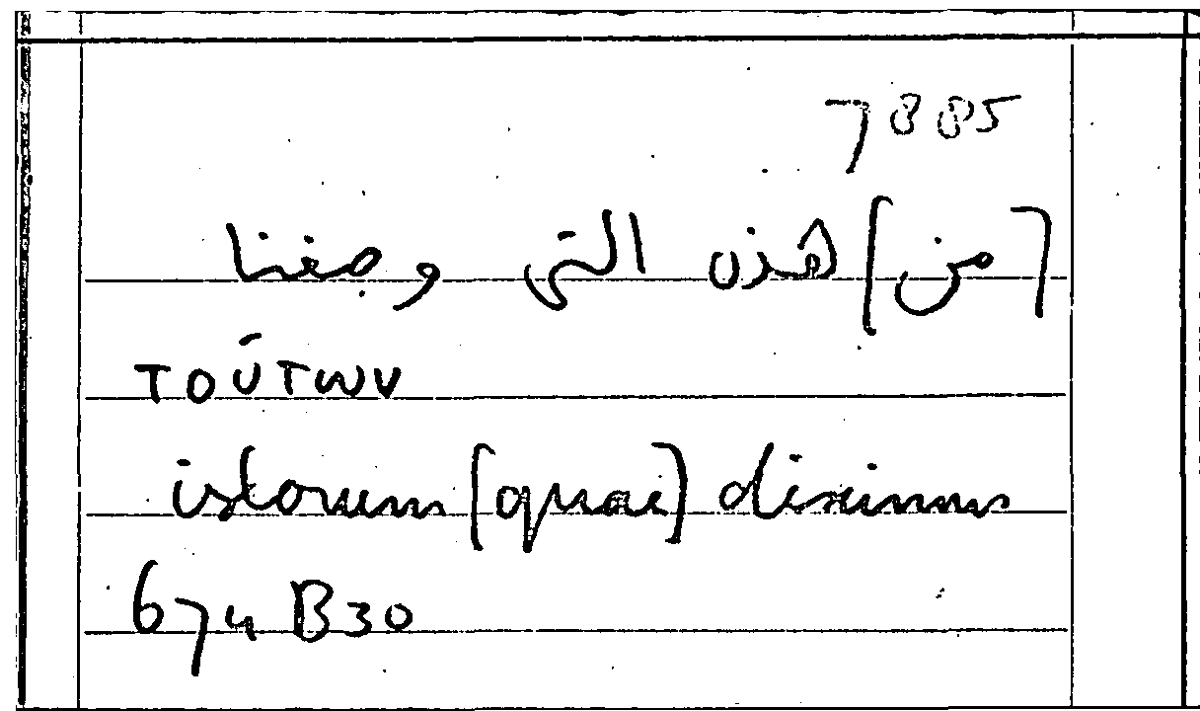 7885
[من] هذه التى وصفنا
τούτων
istorum [quae] diximus
674 B30